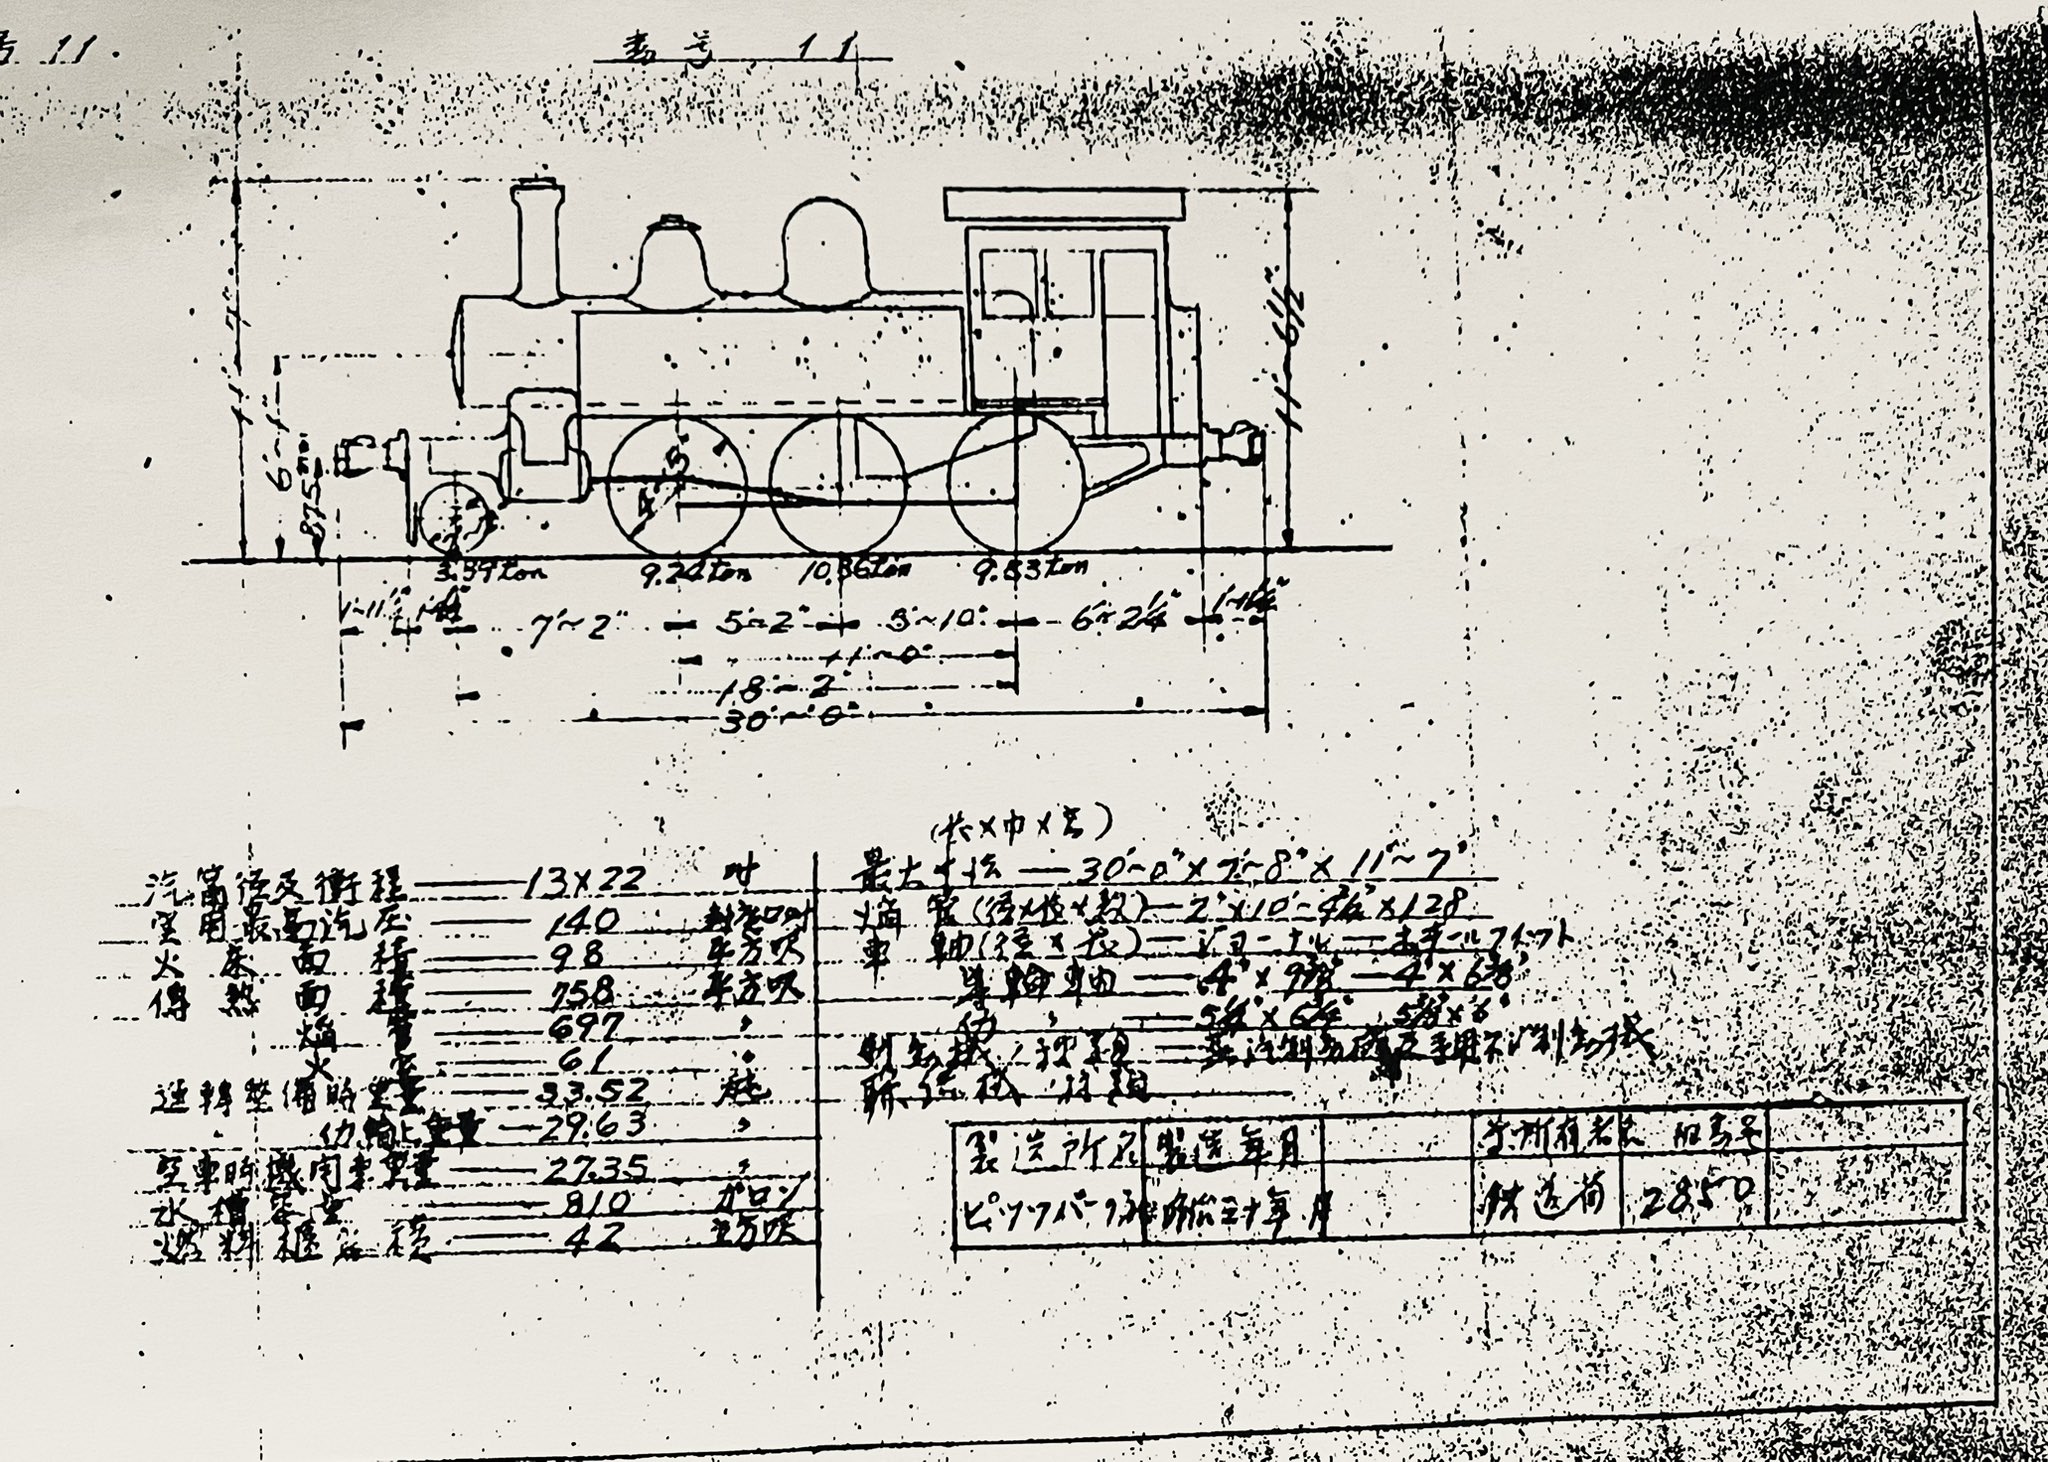 号 11.
番号 11
11'~7"
6'~1"
875mm
11'~6½"
4'
3.39ton 9.24ton 10.36ton 9.53ton
1'~11½" 7'~2" 5'~2" 5'~10" 6'~2¼"
11'~0"
18'~2"
30'~0"
(長×巾×高)
汽筩径及衝程 13×22 吋
実用最高汽圧 140
火床面積 98 平方呎
傳熱面積 758 平方呎
焔管 697 〃
火室 61 〃
運轉整備時重量 33.52 瓲
仝動輪上重量 29.63 〃
空車時機関車重量 27.35 〃
水槽容量 810 ガロン
燃料櫃容積 42 立方呎
最大寸法 30'~0"×7'~8"×11'~7"
焔管(径×長×数) 2"×10'~4⅜"×128
車軸(径×長) ジヨーナル ホヰールフイツト
先輪軸 4"×9⅞" 4"×6⅜"
動 〃 5¼"×6¼" 5⅜"×6"
制動機ノ種類 蒸汽制動機及手用制動機
聯結機ノ種類
製造所名 製造年月 旧所有者名 旧番号
ピツツバーグ 明治三十年 月 鉄道省 2850